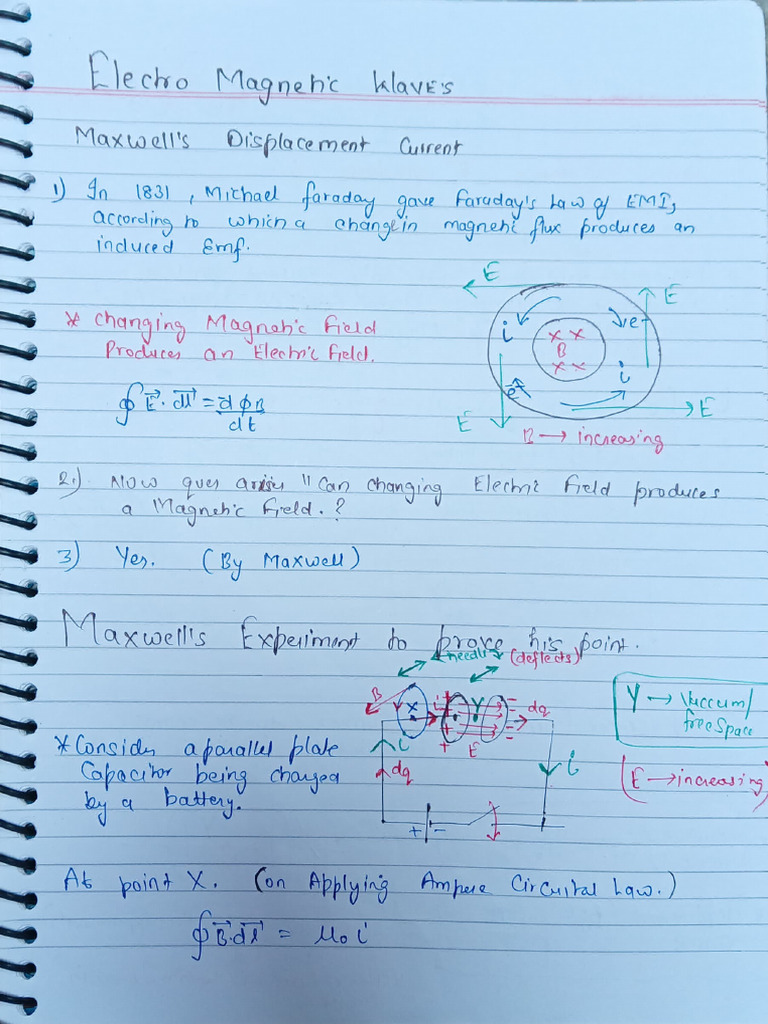 Electro Magnetic Waves
Maxwell's Displacement Current
1) In 1831, Michael faraday gave Faraday's Law of EMI,
according to which a change in magnetic flux produces an
induced Emf.
* Changing Magnetic Field
Produces an Electric Field.
∮ E⃗. dl⃗ = dφB/dt
E
E
i
e-
x x
B
x x
i
e-
E
E
B → increasing
2.) Now ques arises "Can changing Electric Field produces
a Magnetic Field.?
3) Yes. (By Maxwell)
Maxwell's Experiment to prove his point.
needle (deflects)
B
X
i
Y
dq
+
E
-
i
dq
i
+ -
Y → Vaccum/
free space
(E → increasing)
* Consider a parallel plate
Capacitor being charged
by a battery.
At point X. (on Applying Ampere Circuital Law.)
∮ B⃗.dl⃗ = μ₀ i